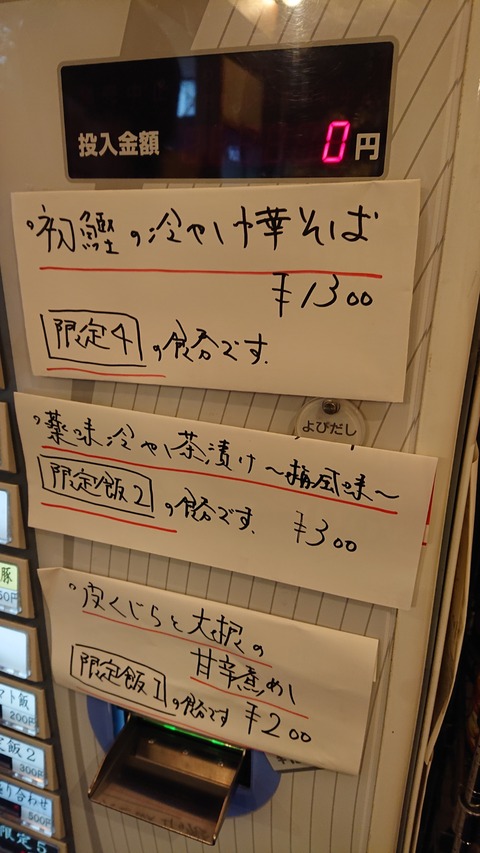 投入金額 0円
初鰹の冷やし中華そば
¥1300
限定4の食券です.
よびだし
薬味冷やし茶漬け〜梅風味〜
限定飯2の食券です. ¥300
皮くじらと大根の
甘辛煮めし
限定飯1の食券です ¥200
豚
50円
マト飯
200円
定飯2
300円
り合わせ
500円
限定5